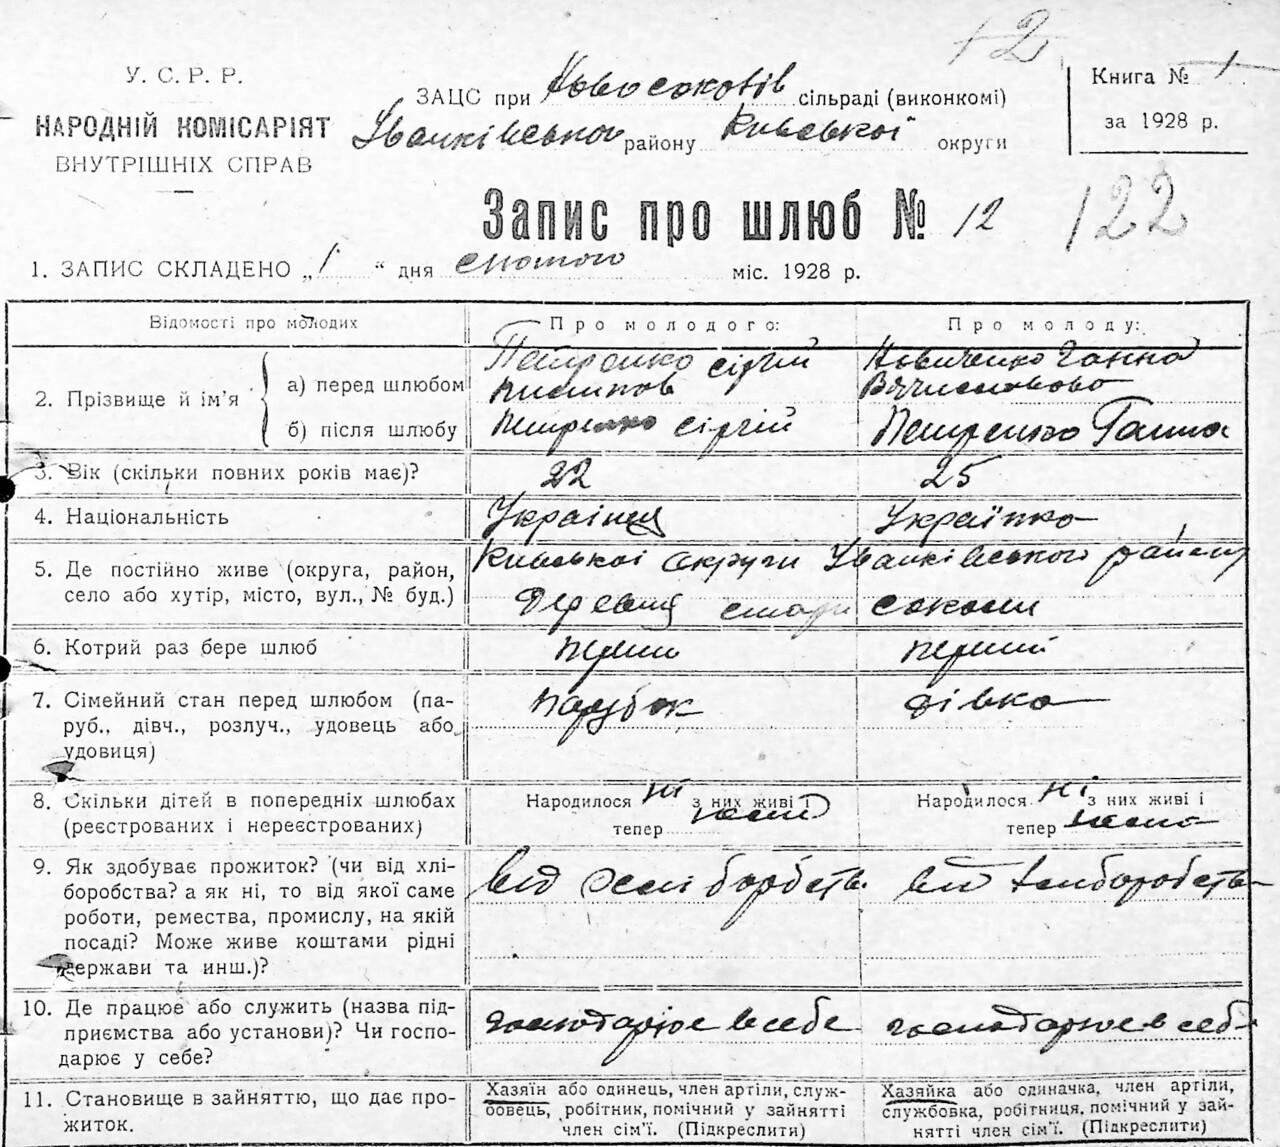 12
У. С. Р. Р.
НАРОДНІЙ КОМІСАРІЯТ
ВНУТРІШНІХ СПРАВ
ЗАЦС при Новосоколів сільраді (виконкомі)
Іванківського району Київської округи
Книга № 1
за 1928 р.
Запис про шлюб № 12
122
1. ЗАПИС СКЛАДЕНО „1“ дня лютого міс. 1928 р.
Відомості про молодих
Про молодого:
Про молоду:
2. Прізвище й ім’я
а) перед шлюбом
Петренко Сіргій
Новиченко Ганна
б) після шлюбу
Петренко Сіргій
Петренко Ганна
3. Вік (скільки повних років має)?
22
25
4. Національність
Українец
Українка
5. Де постійно живе (округа, район,
село або хутір, місто, вул., № буд.)
Київської округи Іванківського району
Деревня стари соколи
6. Котрий раз бере шлюб
перши
перший
7. Сімейний стан перед шлюбом (па-
руб., дівч., розлуч., удовець або
удовиця)
парубок
дівка
8. Скільки дітей в попередніх шлюбах
(реєстрованих і нереєстрованих)
Народилося ні з них живі і
тепер
Народилося ні з них живі і
тепер
9. Як здобуває прожиток? (чи від хлі-
боробства? а як ні, то від якої саме
роботи, ремества, промислу, на якій
посаді? Може живе коштами рідні
держави та инш.)?
від
від
10. Де працює або служить (назва під-
приємства або установи)? Чи госпо-
дарює у себе?
господарює в себе
господарює в себе
11. Становище в зайняттю, що дає про-
житок.
Хазяїн або одинець, член артіли, служ-
бовець, робітник, помічний у зайнятті
член сім’ї. (Підкреслити)
Хазяйка або одиначка, член артіли,
службовка, робітниця, помічний у зай-
нятті член сім’ї. (Підкреслити)